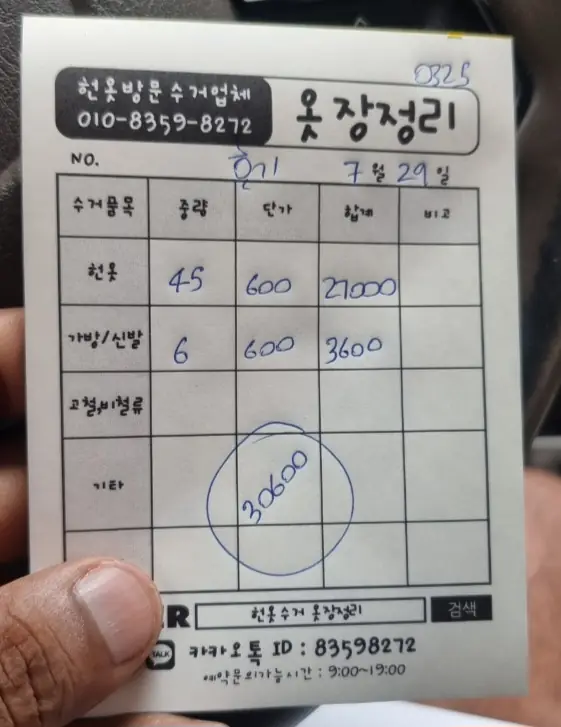 0325
헌옷방문수거업체
010-8359-8272
옷장정리
NO.
7월 29일
수거품목 중량 단가 합계 비고
헌옷 45 600 27000
가방/신발 6 600 3600
고철,비철류
기타
30600
헌옷수거 옷장정리 검색
TALK 카카오톡 ID : 83598272
예약문의가능시간 : 9:00~19:00